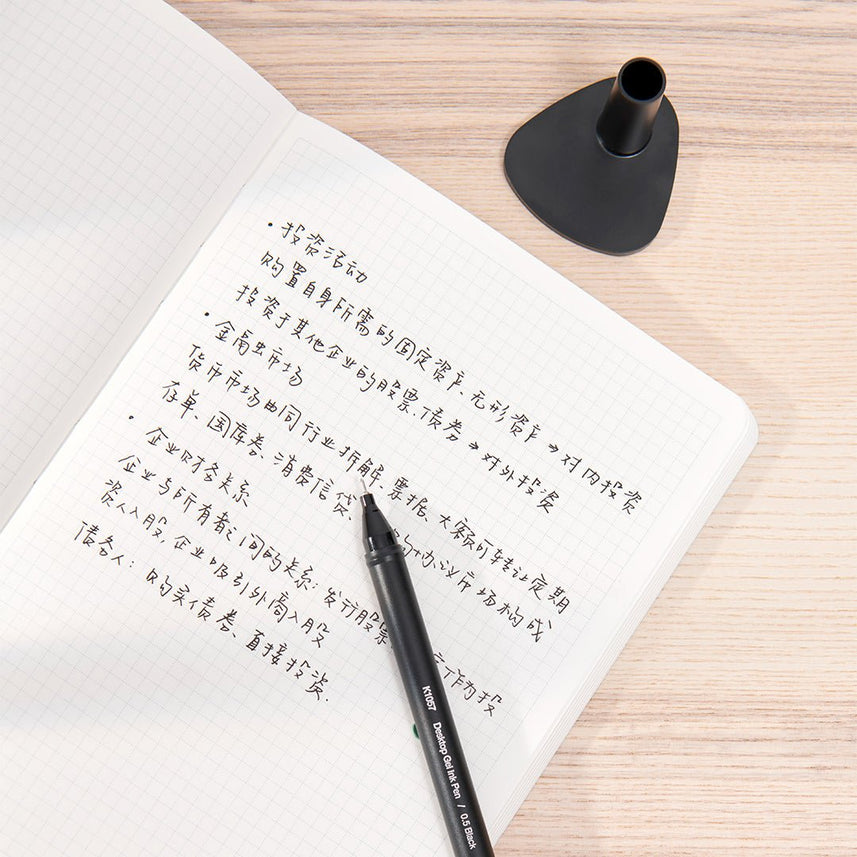 • 投资活动
购置自身所需的固定资产、无形资产→对内投资
投资于其他企业的股票、债券→对外投资
• 金融市场
货币市场由同行业拆解、票据、大额可转让定期
存单、国库券、消费信贷、购协议市场构成
• 企业财务关系
企业与所有者之间的关系：发行股票 作为投
资人入股，企业吸引外商入股
债务人：购买债券、直接投资.
K1057 Desktop Gel Ink Pen / 0.5 Black